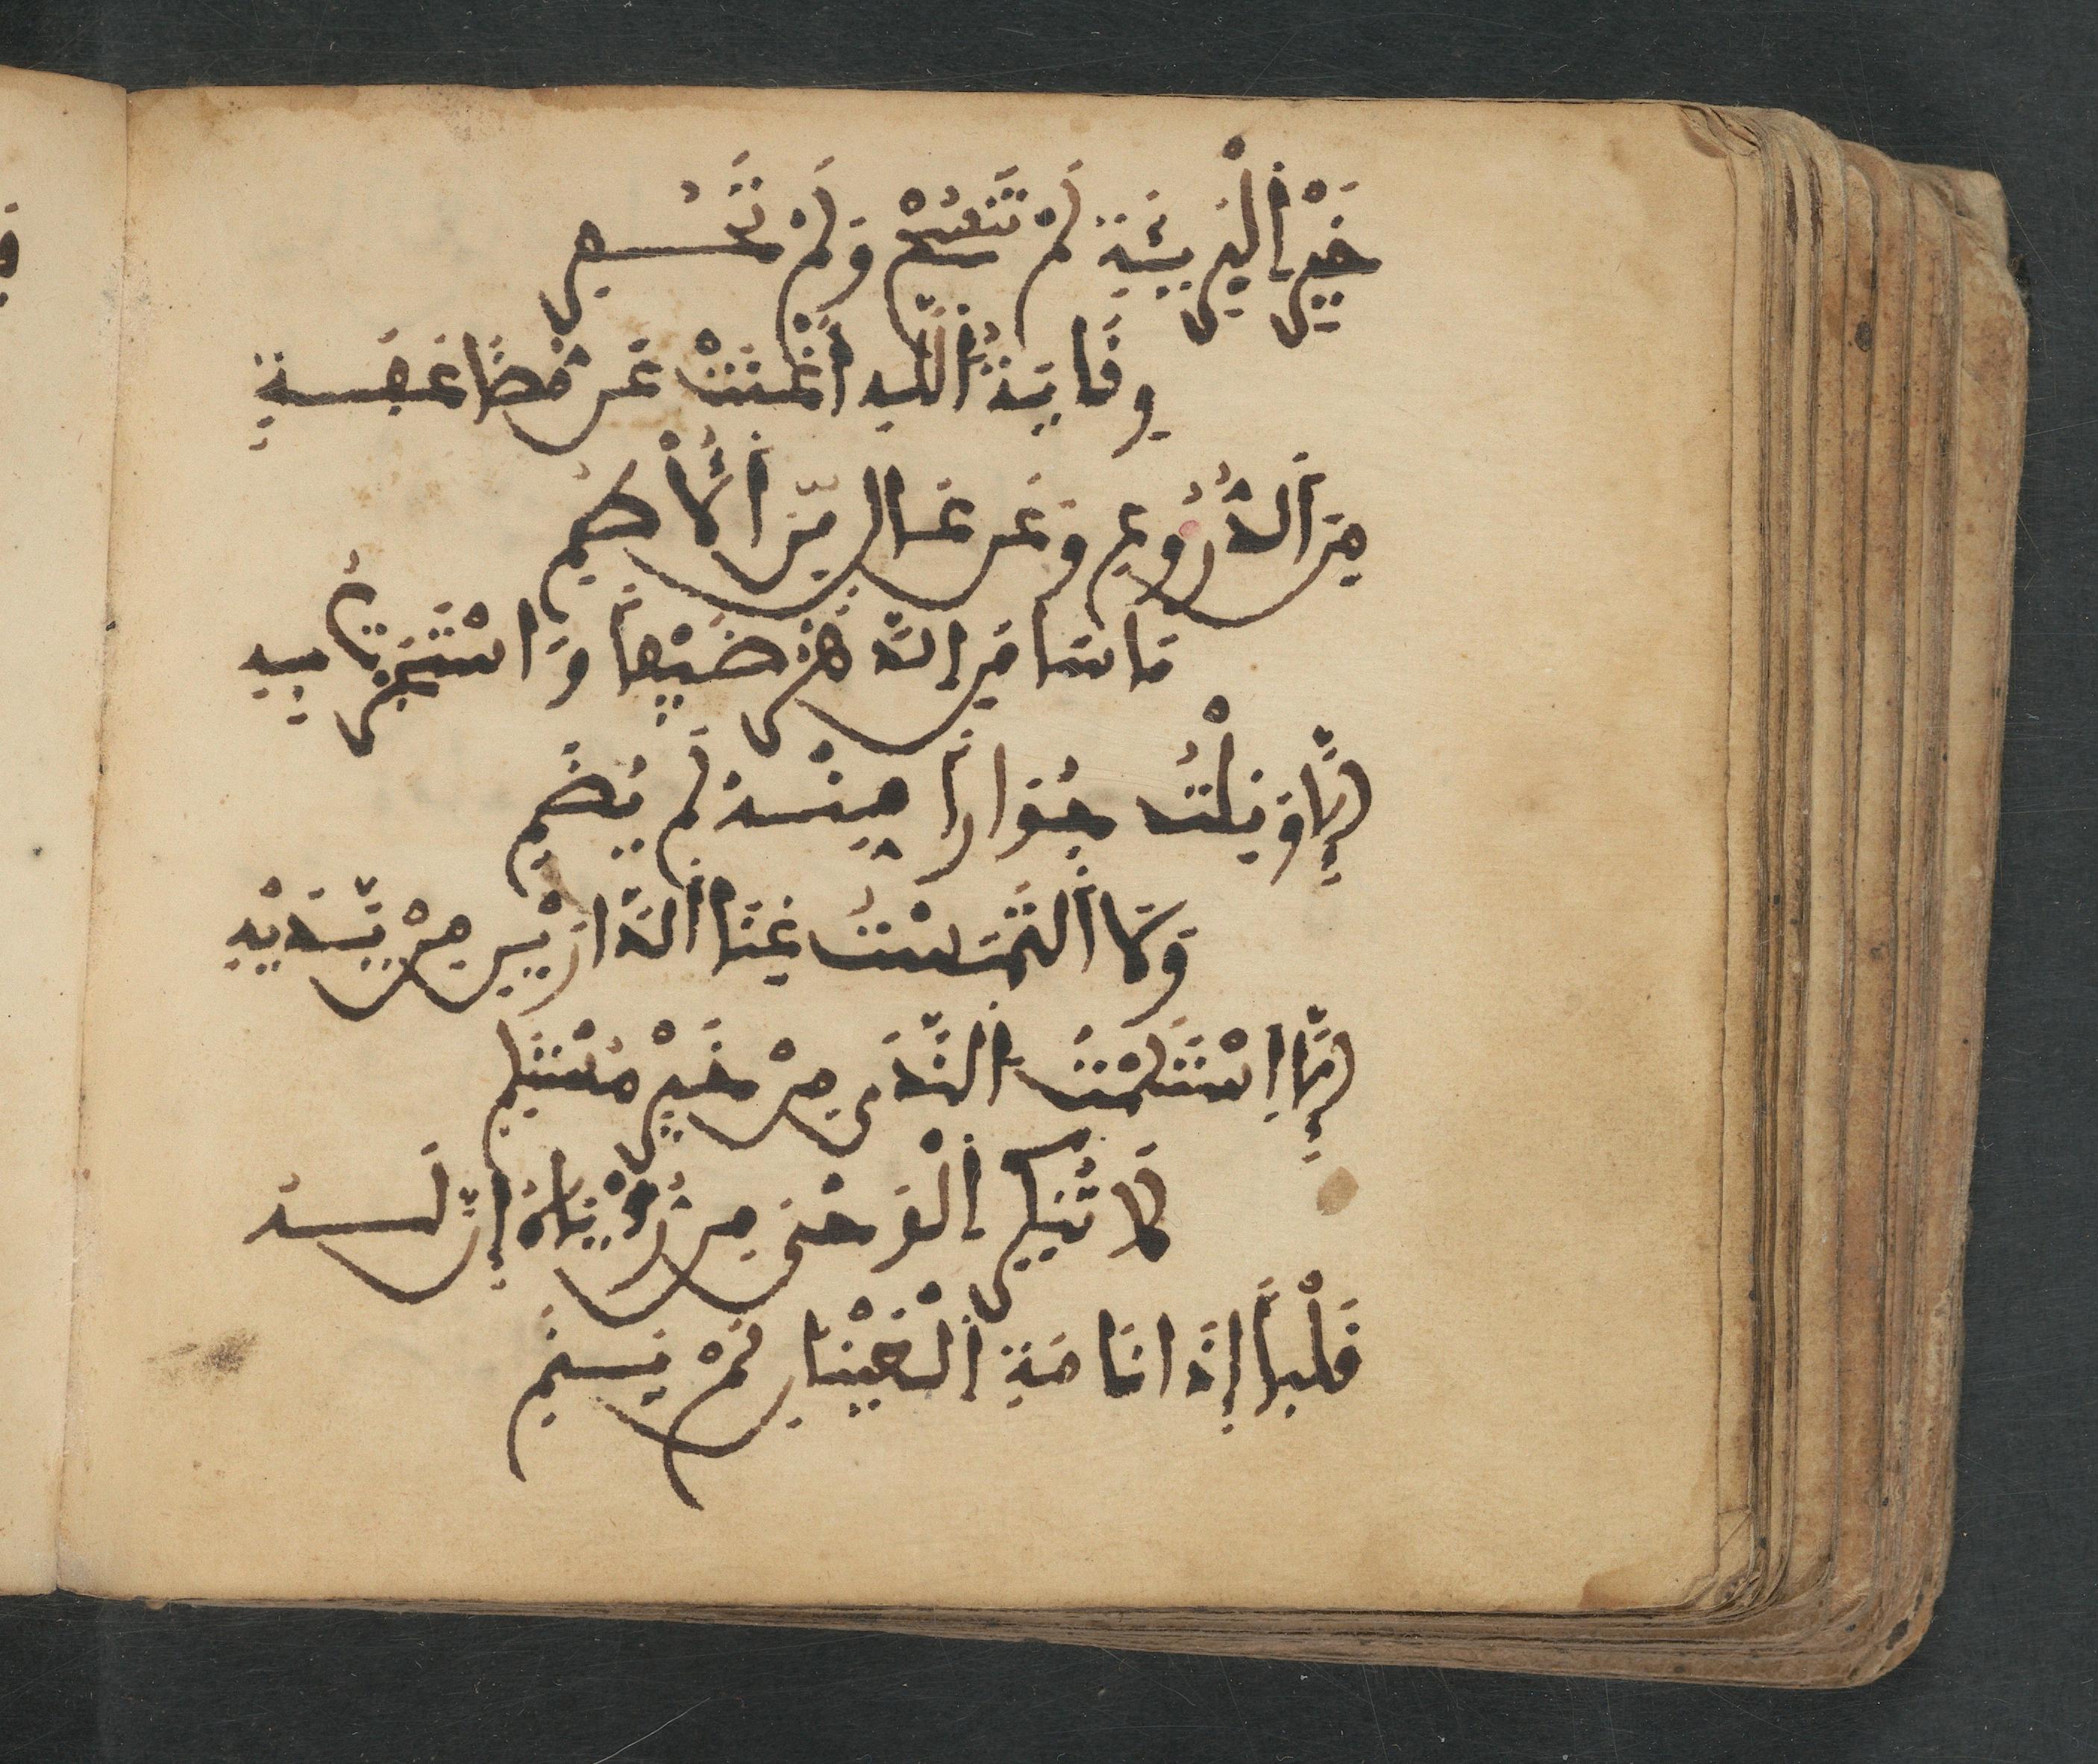 خَيْرِ الْبَرِيَّةِ لَمْ تَنْسُجْ وَلَمْ تَحُمِ
وِقَايَةُ اللَّهِ أَغْنَتْ عَن مُّضَاعَفَةٍ
مِنَ الدُّرُوعِ وَعَن عَالٍ مِّنَ الْأُطُمِ
مَا سَامَنِي الدَّهْرُ ضَيْمًا وَاسْتَجَرْتُ بِهِ
إِلَّا وَنِلْتُ جِوَارًا مِنْهُ لَمْ يُضَمِ
وَلَا الْتَمَسْتُ غِنَا الدَّارَيْنِ مِنْ يَّدِهِ
إِلَّا اسْتَلَمْتُ النَّدَى مِنْ خَيْرِ مُسْتَلَمِ
لَا تُنْكِرِ الْوَحْىَ مِن رُّؤْيَاهُ إِنَّ لَهُ
قَلْبًا إِذَا نَامَتِ الْعَيْنَانِ لَمْ يَنَمِ